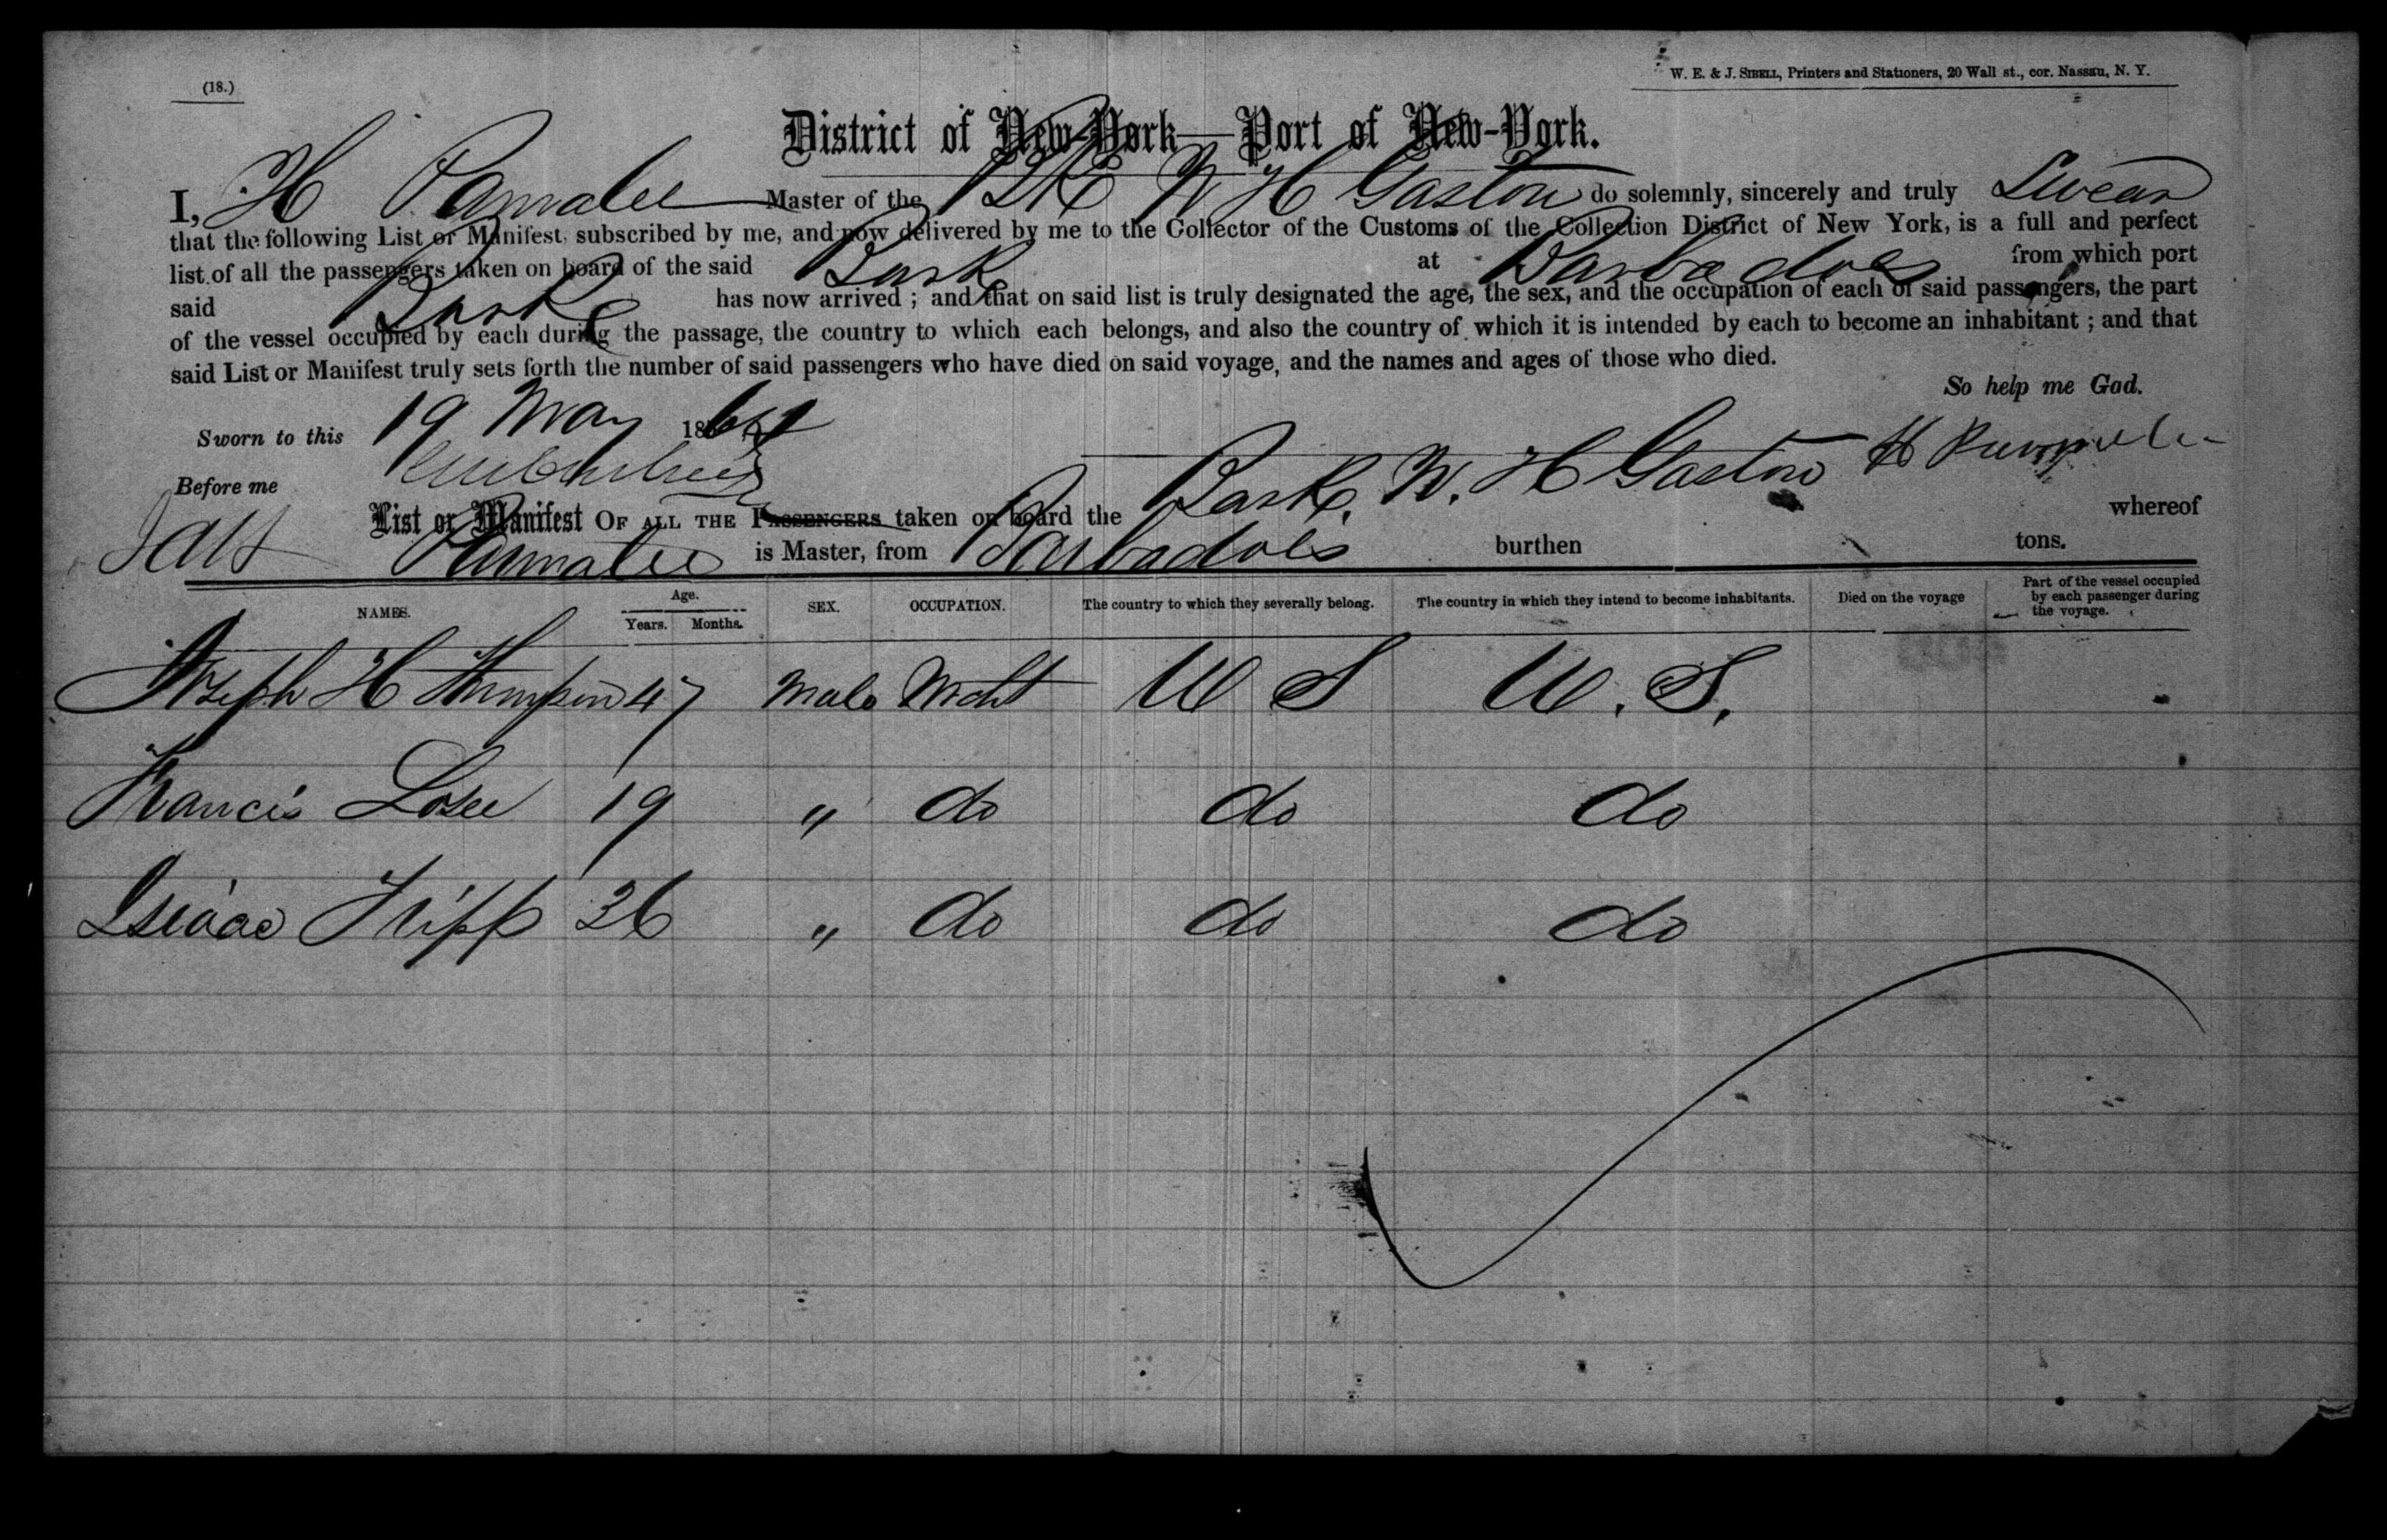 (18.)
W. E. & J. SIBELL, Printers and Stationers, 20 Wall st., cor. Nassau, N. Y.
District of New-York—Port of New-York.
I, H Parmalee Master of the Bk W H Gaston do solemnly, sincerely and truly Swear
that the following List or Manifest, subscribed by me, and now delivered by me to the Collector of the Customs of the Collection District of New York, is a full and perfect
list of all the passengers taken on board of the said Bark at Barbadoes from which port
said Bark has now arrived ; and that on said list is truly designated the age, the sex, and the occupation of each of said passengers, the part
of the vessel occupied by each during the passage, the country to which each belongs, and also the country of which it is intended by each to become an inhabitant ; and that
said List or Manifest truly sets forth the number of said passengers who have died on said voyage, and the names and ages of those who died.
So help me God.
Sworn to this 19 May 18
Before me
H
List or Manifest OF ALL THE PASSENGERS taken on board the Bark W. H Gaston whereof
Parmalee is Master, from Barbadoes burthen tons.
NAMES. Age. Years. Months. SEX. OCCUPATION. The country to which they severally belong. The country in which they intend to become inhabitants. Died on the voyage Part of the vessel occupied by each passenger during the voyage.
Joseph H Thompson 47 Male Mcht U S U. S.
Francis Losee 19 " do do do
Isaac Tripp 26 " do do do